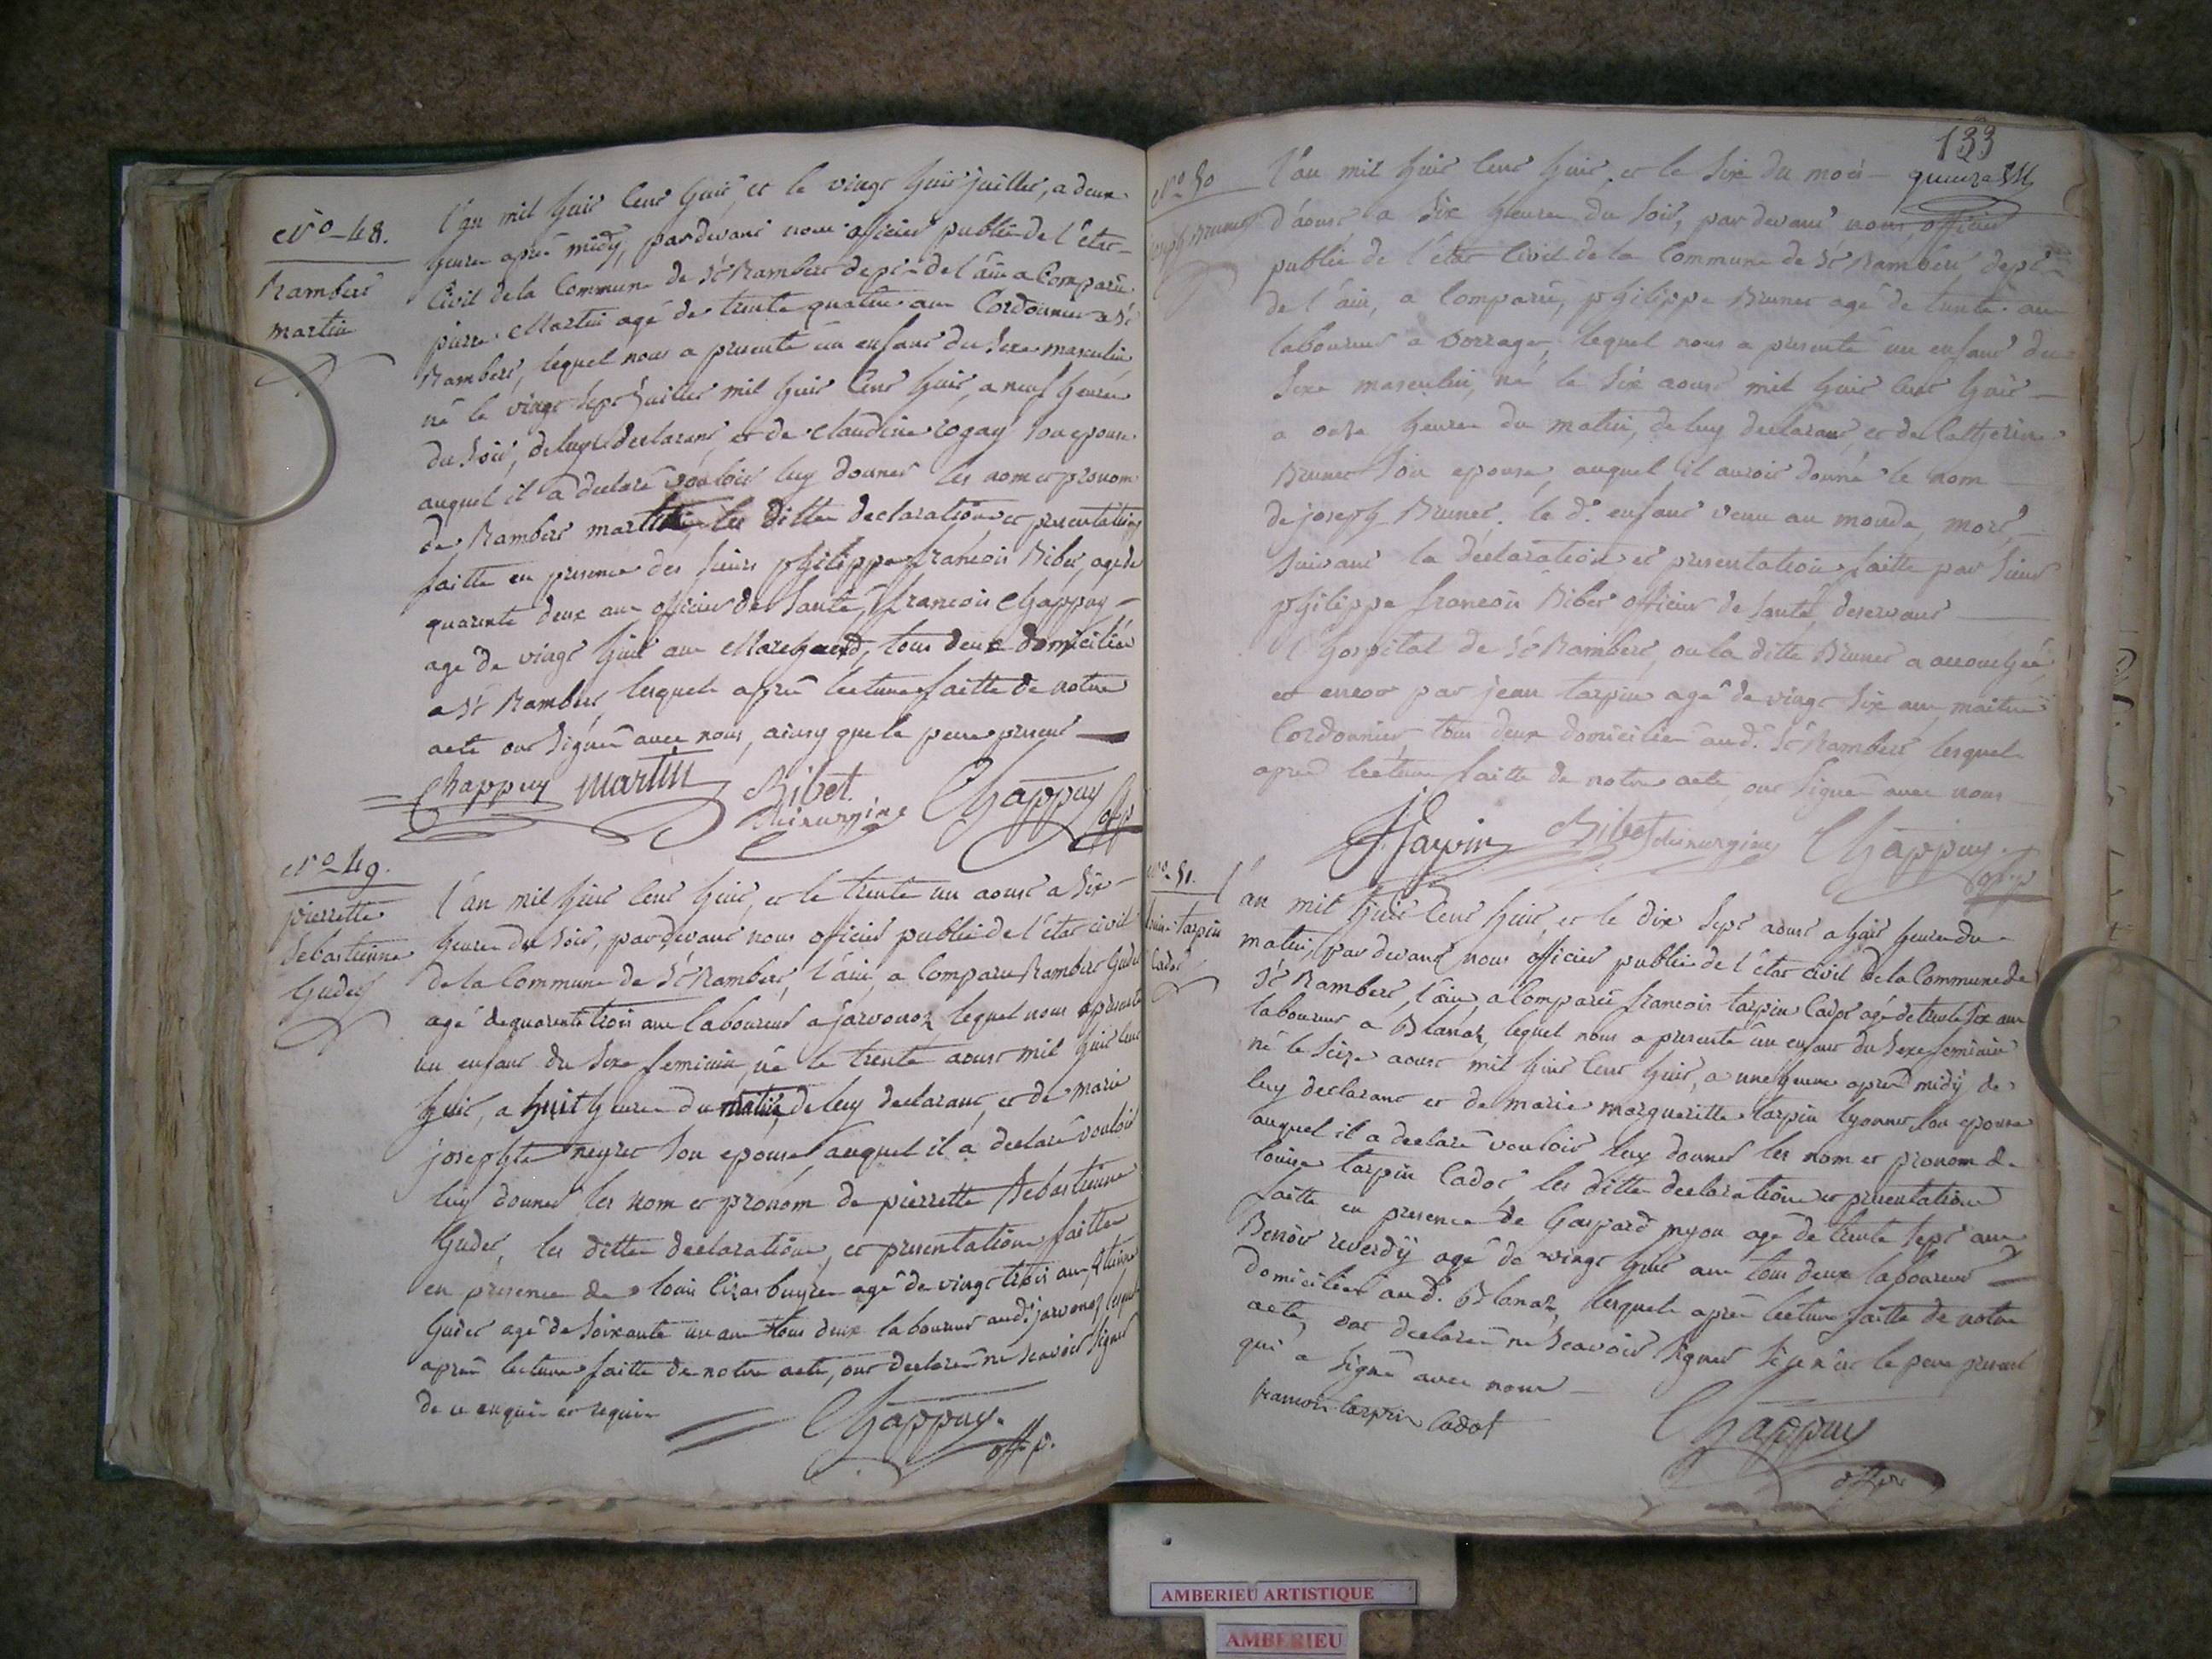 No 48.
Rambert
martin
l'an mil huit cent huit, et le vingt huit juillet, a deux
heures après midy, pardevant nous officier public de l'état
Civil de la Commune de St Rambert dept de l'ain a Comparu
pierre Martin agé de trente quatre ans Cordonnier a St
Rambert, lequel nous a presenté un enfant du sexe masculin
né le vingt sept juillet mil huit cent huit, a neuf heures
du soir, de luy declarant, et de Claudine rogay son epouse
auquel il a declaré vouloir luy donner les nom et pronom
de Rambert martin, les dittes declaration et presentation
faitte en presence des sieurs philippe françois Ribet, agé de
quarente deux ans officier de santé, françois Chappuy
agé de vingt huit ans Marchand, tous deux domiciliés
a St Rambert, lesquels après lecture faitte de notre
acte ont signés avec nous, ainsy que le pere present
Chappuy martin Ribet Chappuy
Chirurgien off p
No 49.
pierrette
Sebastienne
Gudet
l'an mil huit cent huit, et le trente un aoust a six
heures du soir, pardevant nous officier public de l'état civil
de la Commune de St Rambert, l'ain, a Comparu Rambert Gudet
agé de quarente trois ans laboureur a javornoz lequel nous a presenté
un enfant du sexe feminin, né le trente aoust mil huit cent
huit, a huit heures du matin, de luy declarant, et de marie
josephte neyret son epouse auquel il a declaré vouloir
luy donner les nom et pronom de pierrette Sebastienne
Gudet, les dittes declaration, et presentation faittes
en presence de louis agé de vingt trois ans,
Gudet agé de soixante un ans tous deux laboureur aud. javornoz lesquels
après lecture faitte de notre acte, ont declarés ne scavoir signer
de ce enquis et requis
Chappuy.
off. p.
133
No 50
joseph Brunet
l'an mil huit cent huit, et le six du mois
d'aoust a six heures du soir, par devant nous, officier
public de l'état Civil de la Commune de St Rambert, dept
de l'ain, a Comparu, philippe Brunet agé de trente ans
laboureur a Dorrages, lequel nous a presenté un enfant du
sexe masculin, né le six aoust mil huit cent huit
a onze heures du matin, de luy declarant, et de Catherine
Brunet son epouse, auquel il auroit donné le nom
de joseph Brunet. le d. enfant venu au monde, mort,
suivant la déclaration et presentation faitte par sieur
philippe françois Ribet officier de santé, deservant
l'hospital de St Rambert, ou la ditte Brunet a accouchée
et encor par jean tarpin agé de vingt six ans, maitre
Cordonnier, tous deux domiciliés aud. St Rambert lesquels
après lecture faitte de notre acte ont signés avec nous
J Tarpin Ribet chirurgien Chappuy.
off p
No 51.
louise tarpin
Cadot
l'an mil huit cent huit, et le dix sept aoust a huit heures du
matin, par devant nous officier public de l'état civil de la Commune de
St Rambert, l'ain, a Comparu françois tarpin Cadot agé de trente six ans
laboureur a Blanaz, lequel nous a presenté un enfant du sexe feminin
né le seize aoust mil huit cent huit, a une heure après midy de
luy declarant et de marie margueritte tarpin lyonnet son epouse
auquel il a declaré vouloir luy donner les nom et pronom de
louise tarpin Cadot les dittes declaration et presentation
faitte en presence de Gaspard myon agé de trente sept ans
Benoit reverdy agé de vingt huit ans tous deux laboureur
domiciliés aud. Blanaz, lesquels après lecture faitte de notre
acte, ont declarés ne scavoir signer si ce n'est le pere present
qui a signé avec nous
francois tarpin Cadot Chappuy
off p
AMBERIEU ARTISTIQUE
AMBERIEU